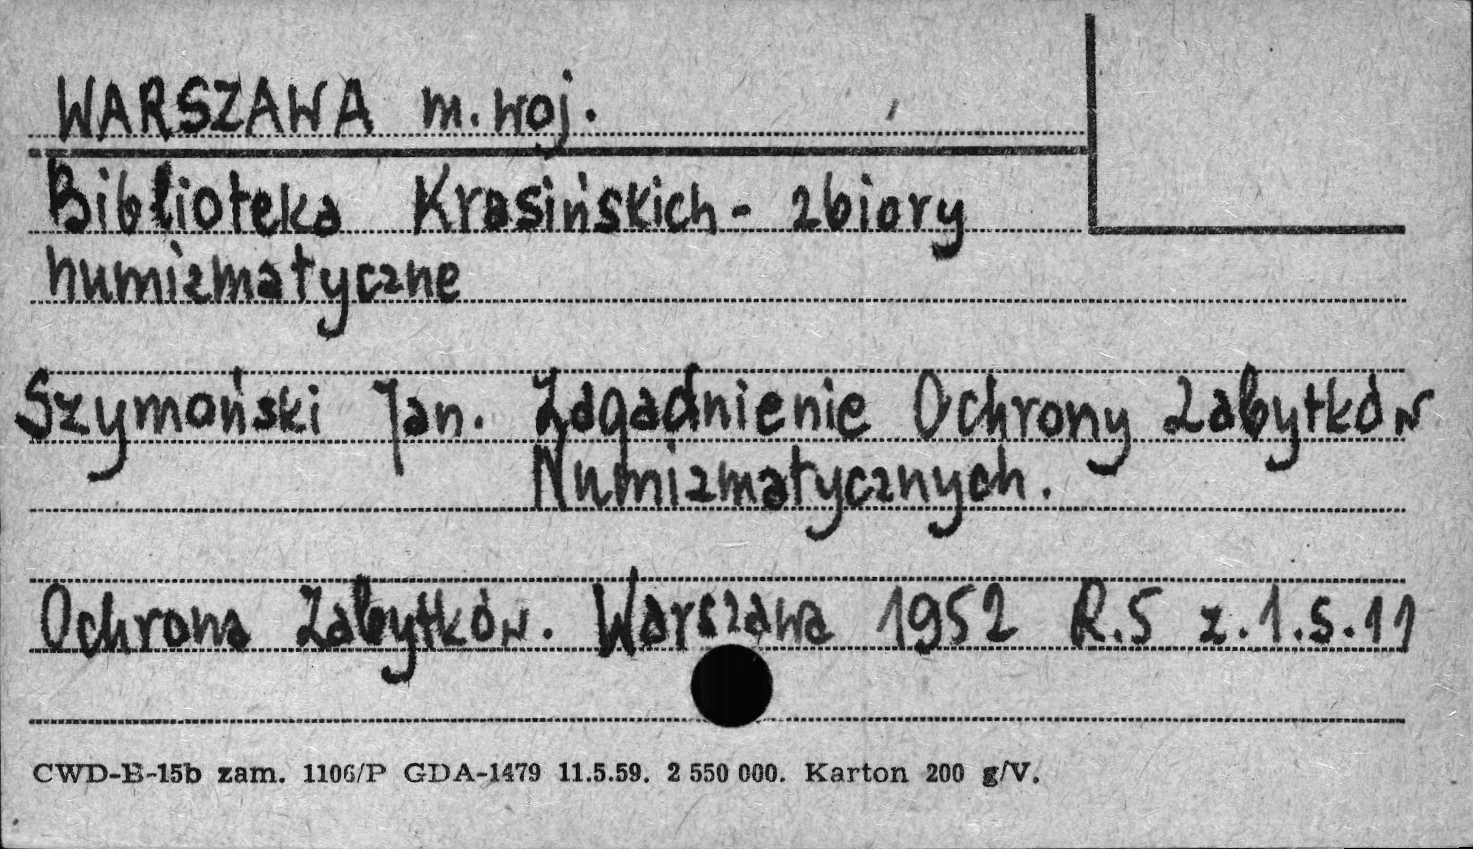 WARSZAWA m. woj.
Biblioteka Krasińskich - zbiory
numizmatyczne
Szymański Jan. Zagadnienie Ochrony Zabytków
Numizmatycznych.
Ochrona Zabytków. Warszawa 1952 R.5 z.1.s.11
CWD-E-15b zam. 1106/P GDA-1479 11.5.59. 2 550 000. Karton 200 g/V.